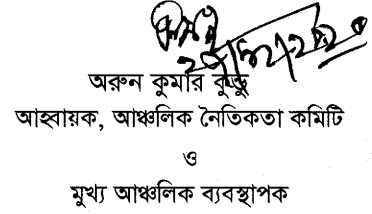 অরুন কুমার কুন্ডু
আহবায়ক, আঞ্চলিক নৈতিকতা কমিটি
ও
মুখ্য আঞ্চলিক ব্যবস্থাপক